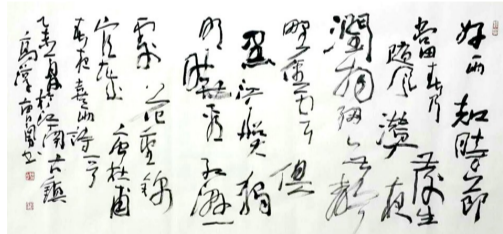 好雨知時節
當春乃發生
隨風潛入夜
潤物細無聲
野徑雲俱
黑江船火獨
明曉看紅濕
處花重錦
官城 唐杜甫
春夜喜雨詩一首
於江南古鎮
高淳